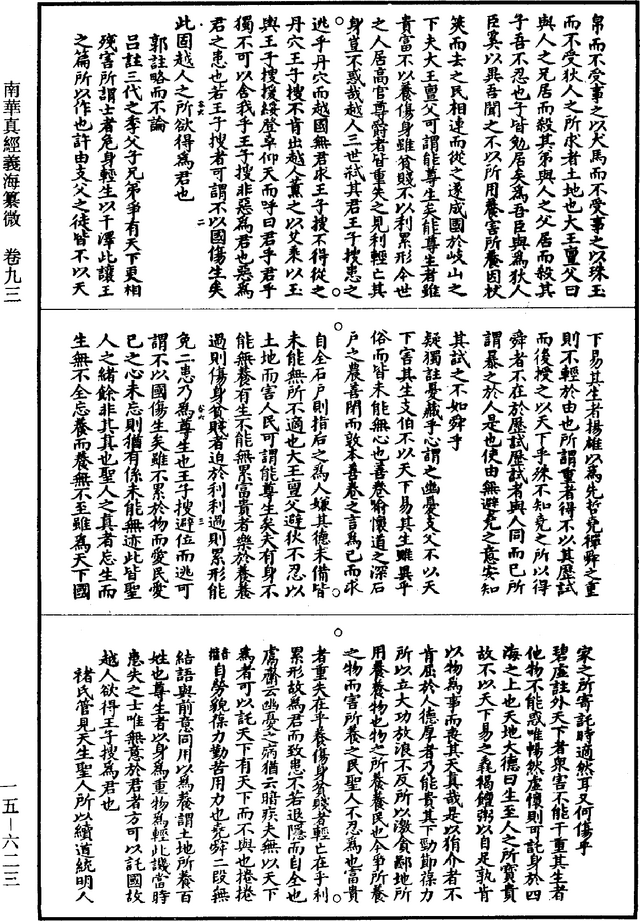 南華真經義海纂微 卷九三
一五—六二三
帛而不受事之以犬馬而不受事之以珠玉
而不受狄人之所求者土地也大王亶父曰
與人之兄居而殺其弟與人之父居而殺其
子吾不忍也子皆勉居矣為吾臣與為狄人
臣奚以異吾聞之不以所用養害所養因杖
筴而去之民相連而從之遂成國於岐山之
下夫大王亶父可謂能尊生矣能尊生者雖
貴富不以養傷身雖貧賤不以利累形今世
之人居高官尊爵者皆重失之見利輕亡其
身豈不惑哉越人三世弒其君王子搜患之
逃乎丹穴而越國無君求王子搜不得從之
丹穴王子搜不肯出越人薰之以艾乘以玉
輿王子搜援綏登車仰天而呼曰君乎君乎
獨不可以舍我乎王子搜非惡為君也惡為
君之患也若王子搜者可謂不以國傷生矣
此固越人之所欲得為君也
郭註略而不論
呂註三代之季父子兄弟爭有天下更相
殘害所謂士者危身輕生以干澤此讓王
之篇所以作也許由支父之徒皆不以天
下易其生者揚雄以為先哲堯禪舜之重
則不輕於由也所謂重者得不以其歷試
而後授之以天下乎殊不知堯之所以得
舜者不在於歷試歷試者與人同而已所
謂暴之於人是也使由無避堯之意安知
其試之不如舜乎
疑獨註憂藏乎心謂之幽憂支父不以天
下害其生支伯不以天下易其生雖異乎
俗而皆未能無心也善卷喻懷道之深石
戶之農善閉而敦本善卷之言為己而求
自全石戶則指后之為人嫌其德未備皆
未能無所不適也大王亶父避狄不忍以
土地而害人民可謂能尊生矣夫有身不
能無養有生不能無累富貴者樂於養養
過則傷身貧賤者迫於利利過則累形能
免二患乃為尊生也王子搜避位而逃可
謂不以國傷生矣雖不累於物而愛民愛
己之心未忘則猶有係未能無迹此皆聖
人之緒餘非其真也聖人之真者忘生而
生無不全忘養而養無不至雖為天下國
家之所寄託時適然耳又何傷乎
碧虛註外天下者眾害不能干重其生者
他物不能惑唯暢然虛懷則可託身於四
海之上也天地大德曰生至人之所寶貴
故不以天下易之義褐饘粥以自足孰肯
以物為事而喪其天真哉是以狷介者不
肯屈於人德厚者乃能貴其下勤節葆力
所以立大功放浪不反所以激食鄙地所
用養養物也物之所養養民也今爭所養
之物而害所養之民聖人不忍為也富貴
者重失在乎養傷身貧賤者輕亡在乎利
累形故為君而致患不若退隱而自全也
鬳齋云幽憂之病猶云暗疾夫無以天下
為者可以託天下有天下而不與也捲捲
自勞貌葆力勤苦用力也堯舜二段無
結語與前意同用以為養謂土地所養百
姓也尊生者以身為重物為輕此譏當時
患失之士唯無意於君者方可以託國故
越人欲得王子搜為君也
褚氏管見天生聖人所以續道統明人